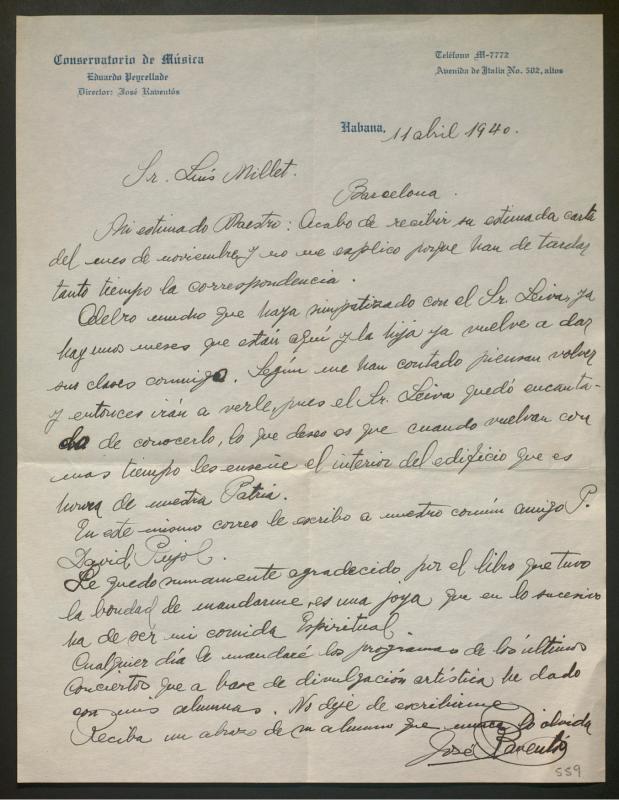 Conservatorio de Música
Eduardo Peyrellade
Director: José Raventós
Teléfono M-7772
Avenida de Italia No. 502, altos
Habana, 11 abril 1940.
Sr. Luís Millet.
Barcelona.
Mi estimado Maestro: Acabo de recibir su estimada carta
del mes de noviembre, y no me esplico porque han de tardar
tanto tiempo la correspondencia.
Celebro mucho que haya simpatizado con el Sr. Leiva, ya
hay unos meses que están aquí y la hija ya vuelve a dar
sus clases conmigo. Según me han contado piensan volver
y entonces irán a verle, pues el Sr. Leiva quedó encanta-
do de conocerlo, lo que deseo es que cuando vuelvan con
mas tiempo les enseñe el interior del edificio que es
honra de nuestra Patria.
En este mismo correo le escribo a nuestro común amigo P.
David Pujol.
Le quedo sumamente agradecido por el libro que tuvo
la bondad de mandarme, es una joya que en lo sucesivo
ha de ser mi comida Espiritual.
Cualquier día le mandaré los programas de los últimos
conciertos que a base de divulgación artística he dado
con mis alumnas. No deje de escribirme
Reciba un abrazo de su alumno que nunca lo olvida
José Raventós
559